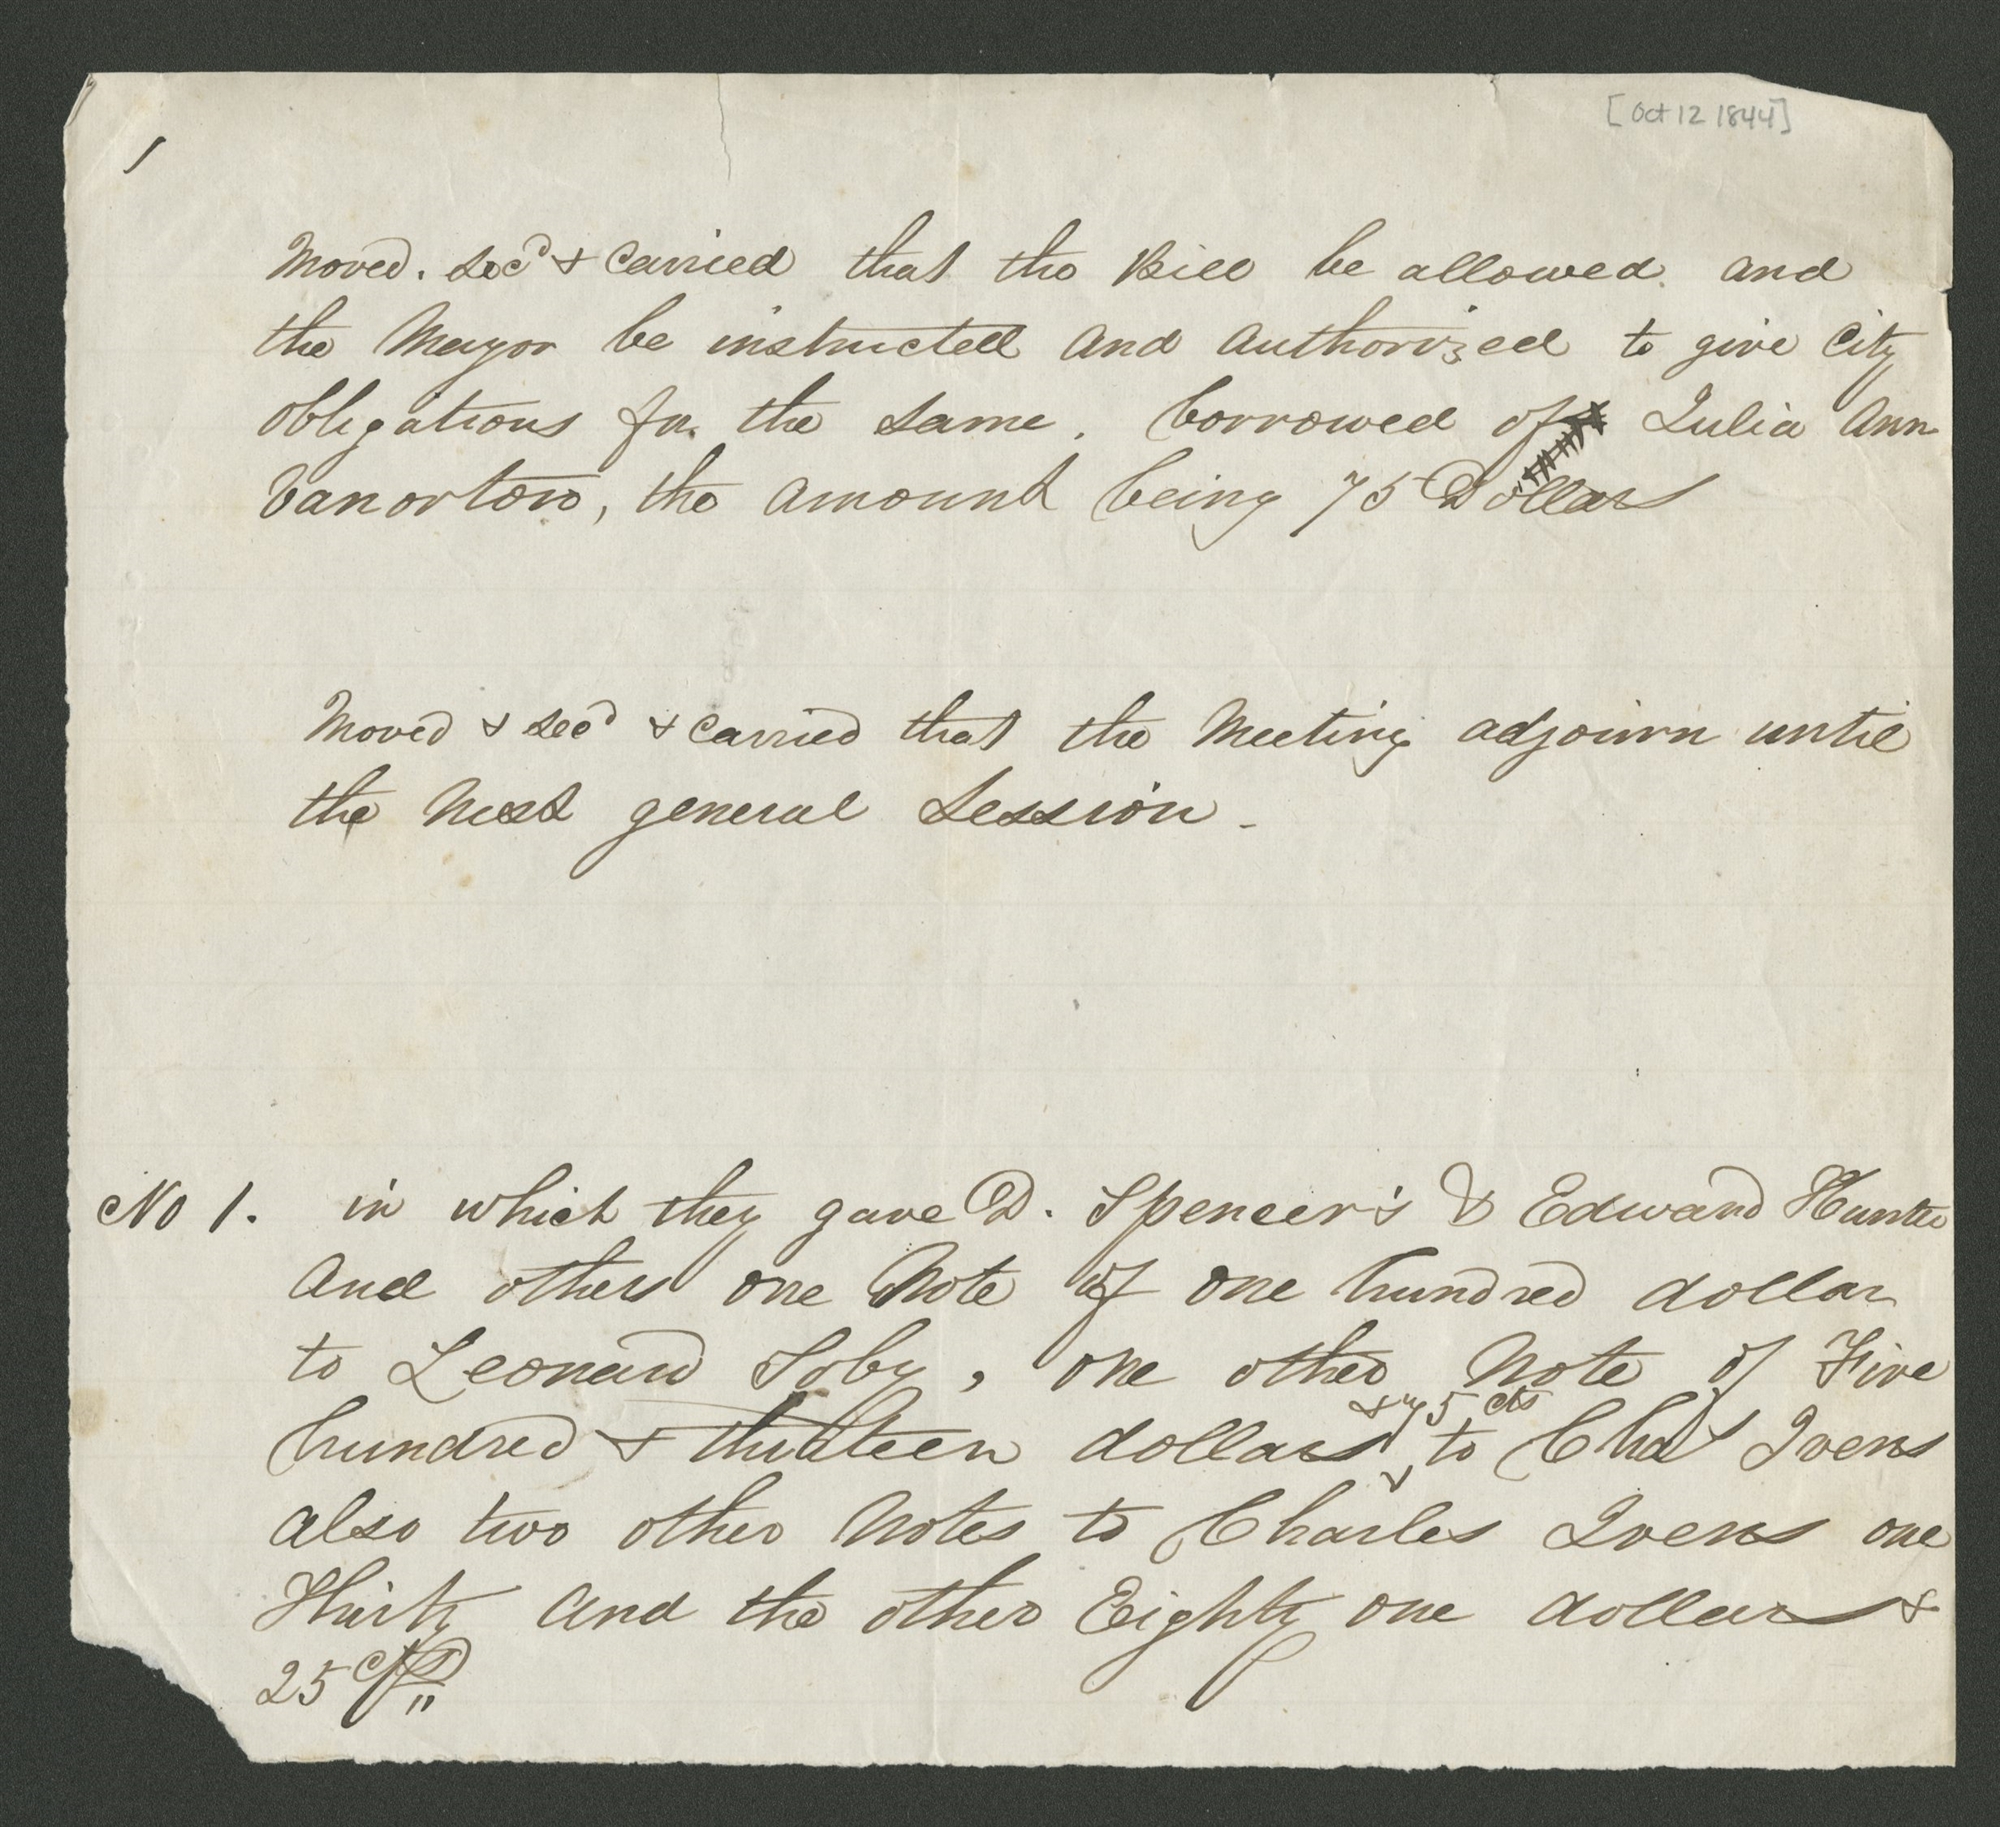 [Oct 12 1844]
1
Moved. Secd & Carried that the Bill be allowed and
the Mayor be instructed and authorized to give City
obligations for the same. borrowed of Julia Ann
Vanorton, the amount being 75 Dollars
Moved & Secd & Carried that the Meeting adjourn until
the Next general Session -
No 1. in which they gave D. Spencer's & Edward Hunter
and others one Note of one hundred dollar
to Leonard Soby, one other Note of Five
& 75 cts
hundred & thirteen dollars to Chas Ivens
also two other Notes to Charles Ivens one
Thirty and the other Eighty one dollars &
25 cts